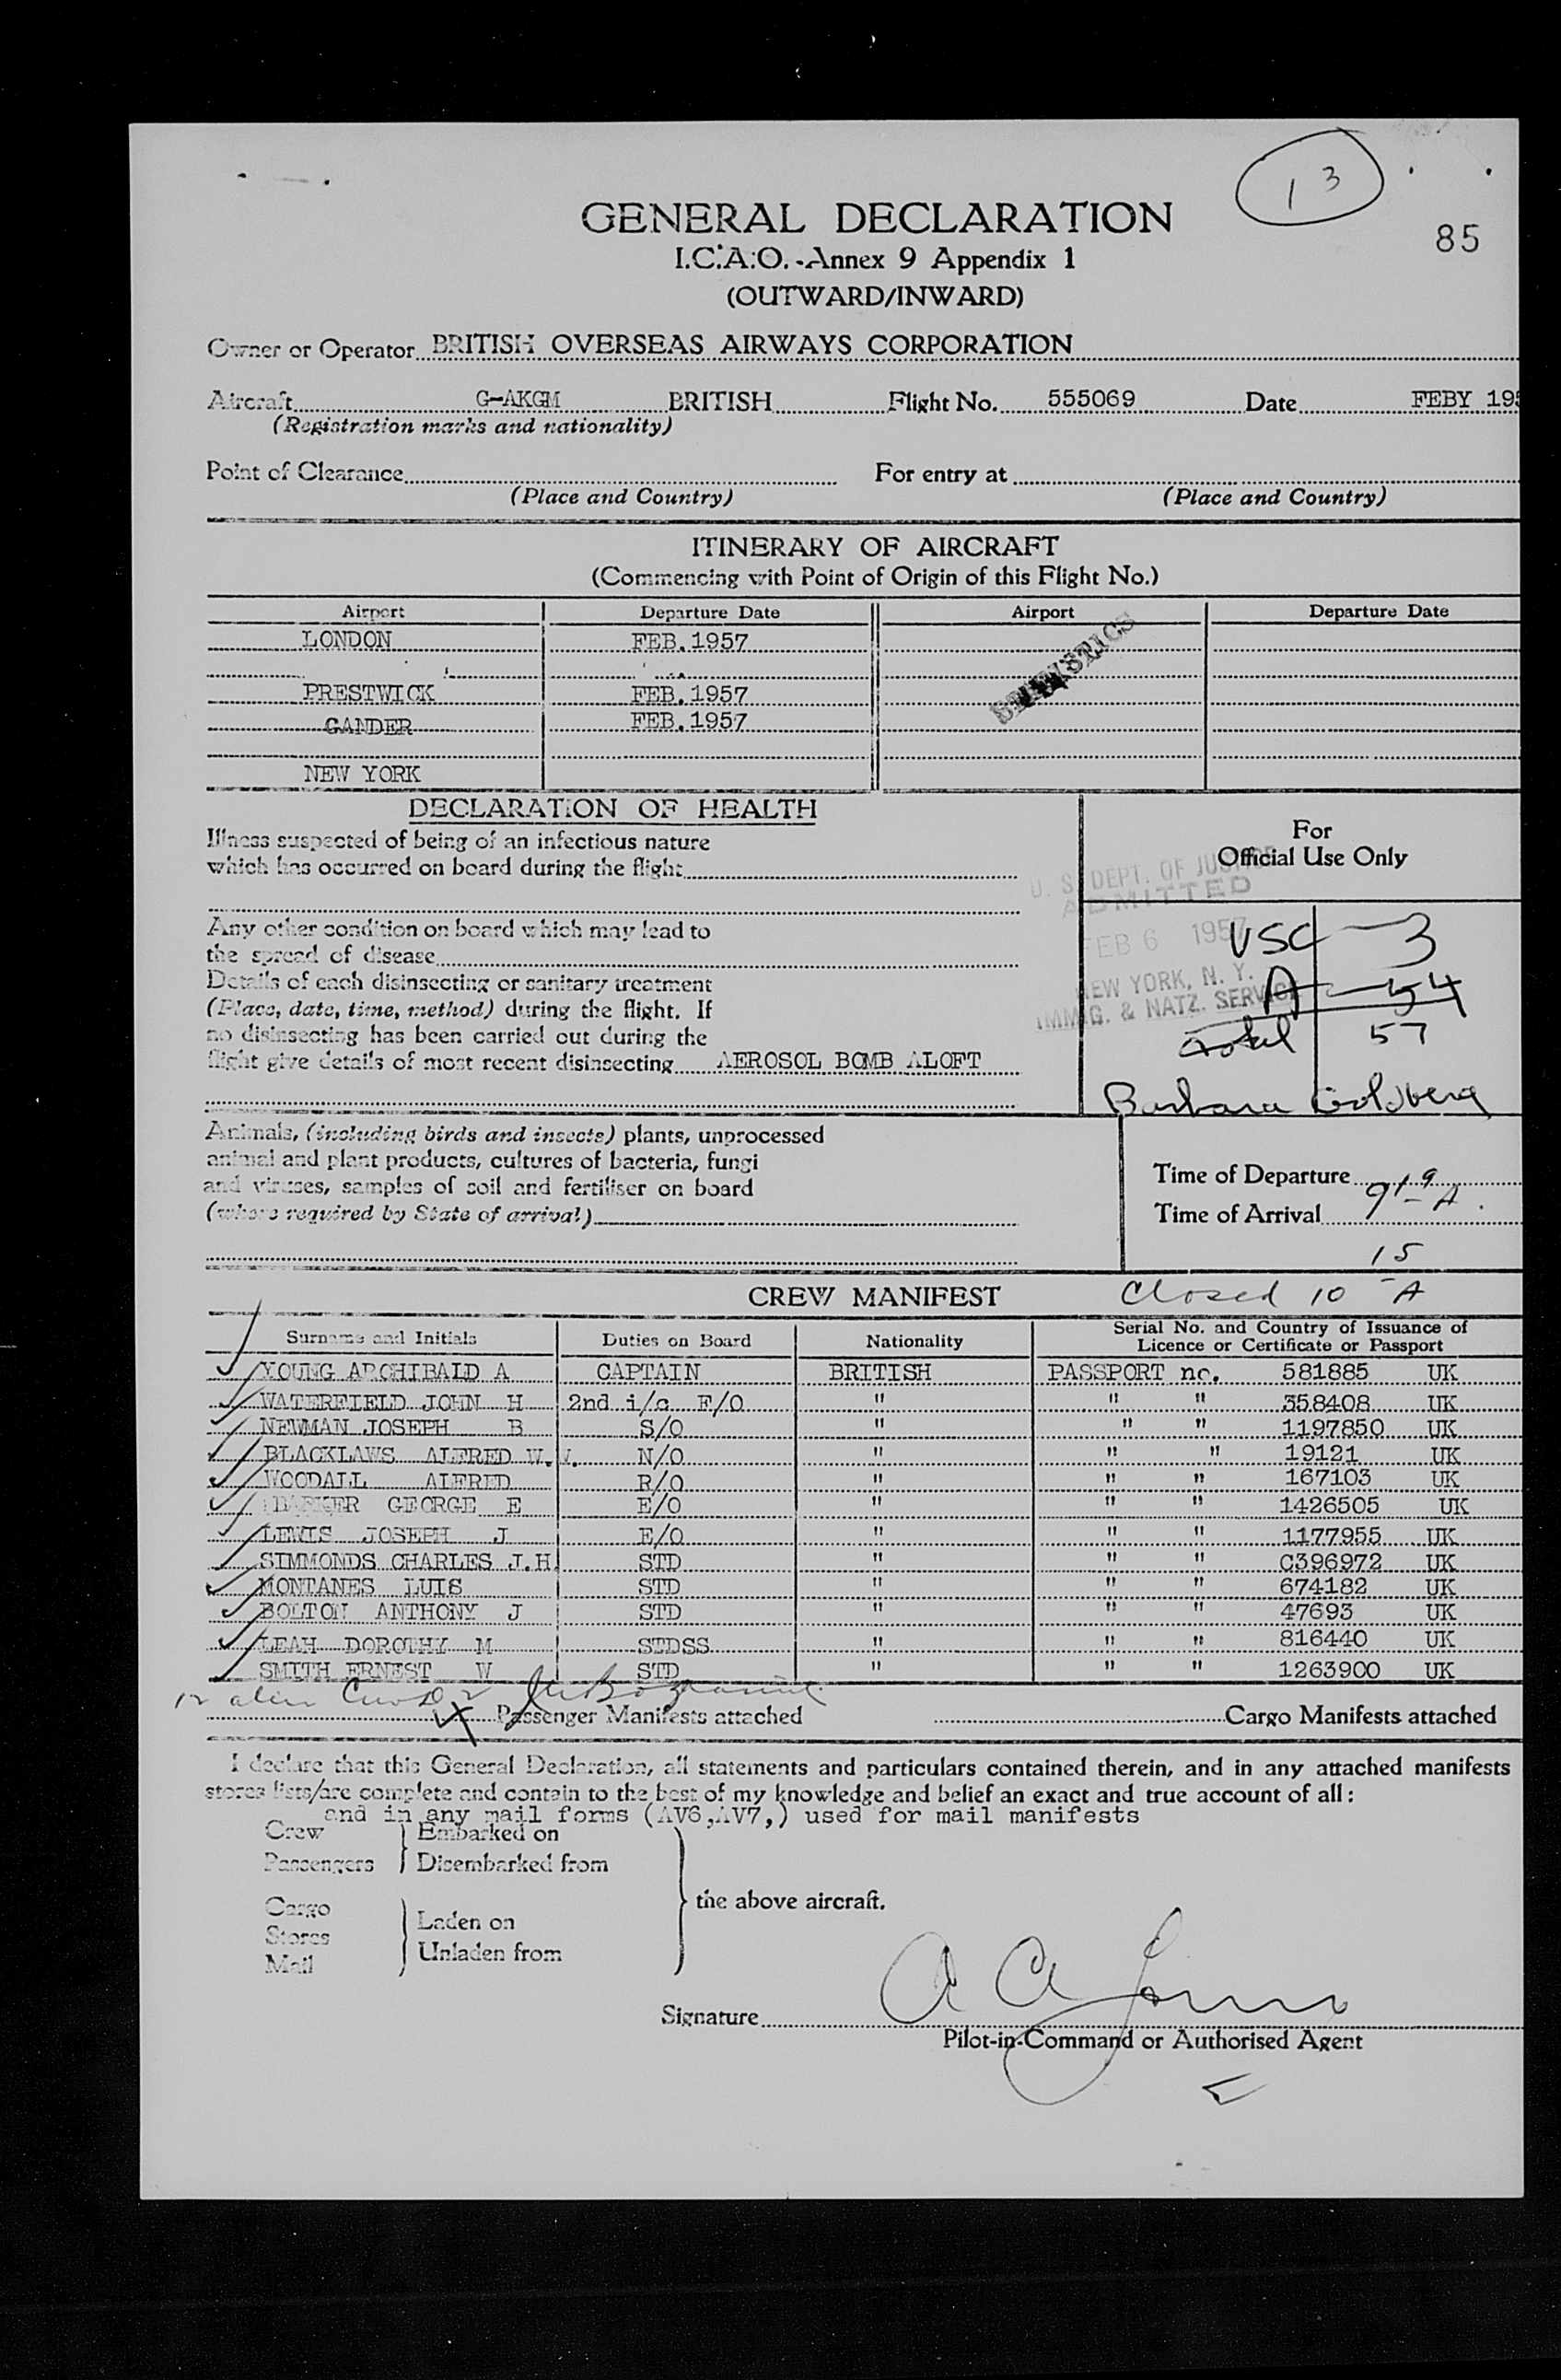 13
85
GENERAL DECLARATION
I.C.A.O. - Annex 9 Appendix 1
(OUTWARD/INWARD)
Owner or Operator BRITISH OVERSEAS AIRWAYS CORPORATION
Aircraft G-AKGM BRITISH Flight No. 555069 Date FEBY 195
(Registration marks and nationality)
Point of Clearance For entry at
(Place and Country) (Place and Country)
ITINERARY OF AIRCRAFT
(Commencing with Point of Origin of this Flight No.)
Airport Departure Date Airport Departure Date
LONDON FEB.1957
PRESTWICK FEB.1957
GANDER FEB.1957
NEW YORK
DECLARATION OF HEALTH
Illness suspected of being of an infectious nature
which has occurred on board during the flight
Any other condition on board which may lead to
the spread of disease
Details of each disinsecting or sanitary treatment
(Place, date, time, method) during the flight. If
no disinsecting has been carried out during the
flight give details of most recent disinsecting AEROSOL BOMB ALOFT
For
Official Use Only
U. S. DEPT. OF JUSTICE
ADMITTED
FEB 6 1957
NEW YORK, N. Y.
IMMIG. & NATZ. SERVICE
USC 3
A 54
Total 57
Barbara Goldberg
Animals, (including birds and insects) plants, unprocessed
animal and plant products, cultures of bacteria, fungi
and viruses, samples of soil and fertiliser on board
(where required by State of arrival)
Time of Departure
Time of Arrival 9 19 A
CREW MANIFEST Closed 10 15 A
Surname and Initials Duties on Board Nationality Serial No. and Country of Issuance of
Licence or Certificate or Passport
YOUNG ARCHIBALD A CAPTAIN BRITISH PASSPORT no. 581885 UK
WATERFIELD JOHN H 2nd i/c F/O " " " 358408 UK
NEWMAN JOSEPH B S/O " " " 1197850 UK
BLACKLAWS ALFRED W.W. N/O " " " 19121 UK
WOODALL ALFRED R/O " " " 167103 UK
BARKER GEORGE E E/O " " " 1426505 UK
LEWIS JOSEPH J E/O " " " 1177955 UK
SIMMONDS CHARLES J.H STD " " " C396972 UK
MONTANES LUIS STD " " " 674182 UK
BOLTON ANTHONY J STD " " " 47693 UK
LEAH DOROTHY M STDSS " " " 816440 UK
SMITH ERNEST W STD " " " 1263900 UK
12 alien Crew
Passenger Manifests attached Cargo Manifests attached
I declare that this General Declaration, all statements and particulars contained therein, and in any attached manifests
stores lists/are complete and contain to the best of my knowledge and belief an exact and true account of all:
and in any mail forms (AV6,AV7,) used for mail manifests
Crew Embarked on
Passengers Disembarked from
the above aircraft.
Cargo
Stores Laden on
Mail Unladen from
Signature A A Young
Pilot-in-Command or Authorised Agent